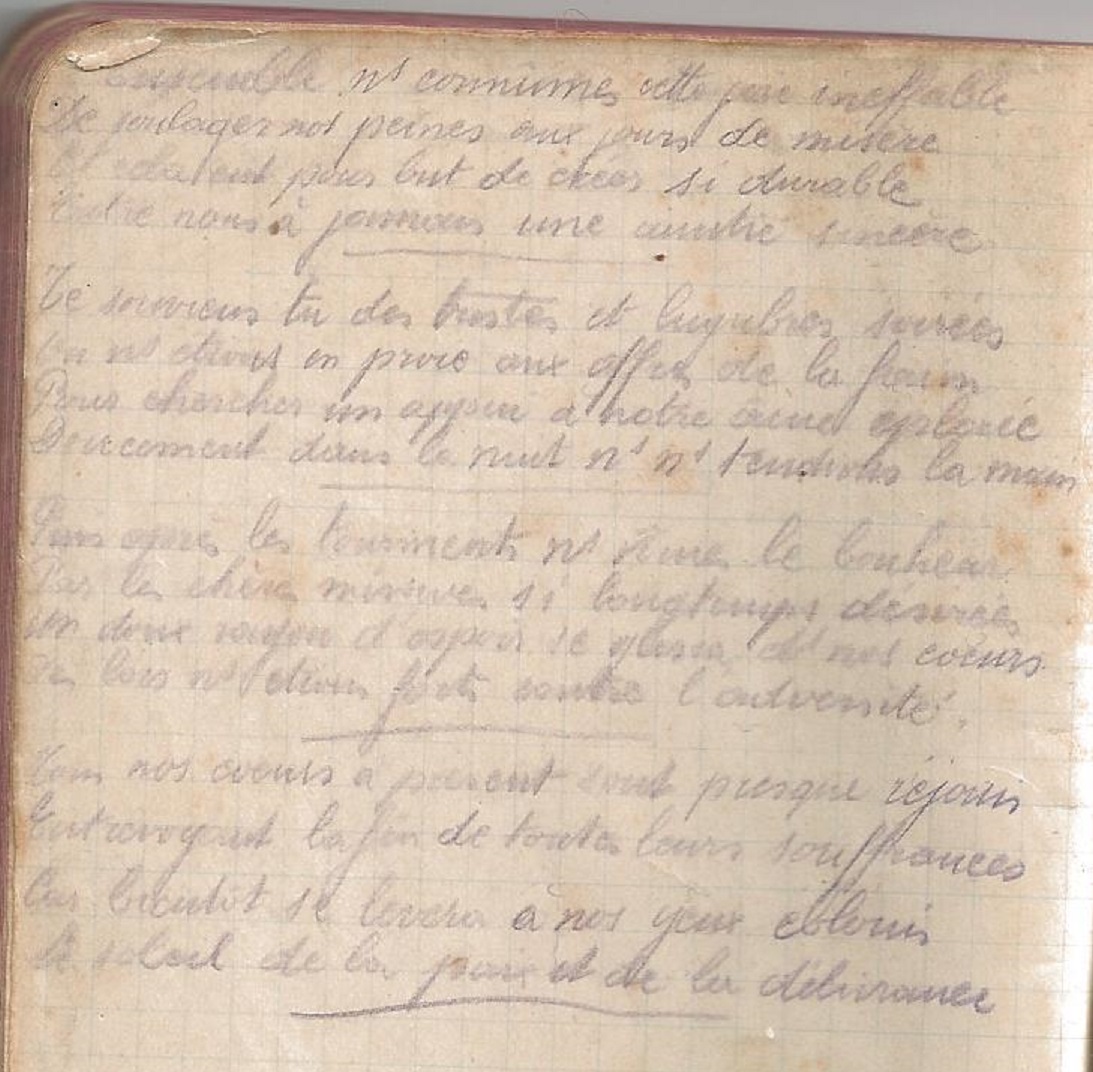 Ensemble ns connûmes cette joie ineffable
De soulager nos peines aux jours de misère
Et cela eut pour but de créer si durable
Entre nous à jamais une amitié sincère
Te souviens tu des tristes et lugubres soirées
Ou ns étions en proie aux affres de la faim
Pour chercher un appui à notre âme éplorée
Doucement dans la nuit ns ns tendions la main
Puis après les tourments ns vint le bonheur
Par les chères missives si longtemps désirées
Un doux rayon d'espoir se glissa ds nos coeurs
Des lors ns étions forts contre l'adversité.
Tous nos coeurs à présent sont presque réjouis
Entrevoyant la fin de toutes leurs souffrances
Car bientôt se lèvera à nos yeux éblouis
Le soleil de la paix et de la délivrance